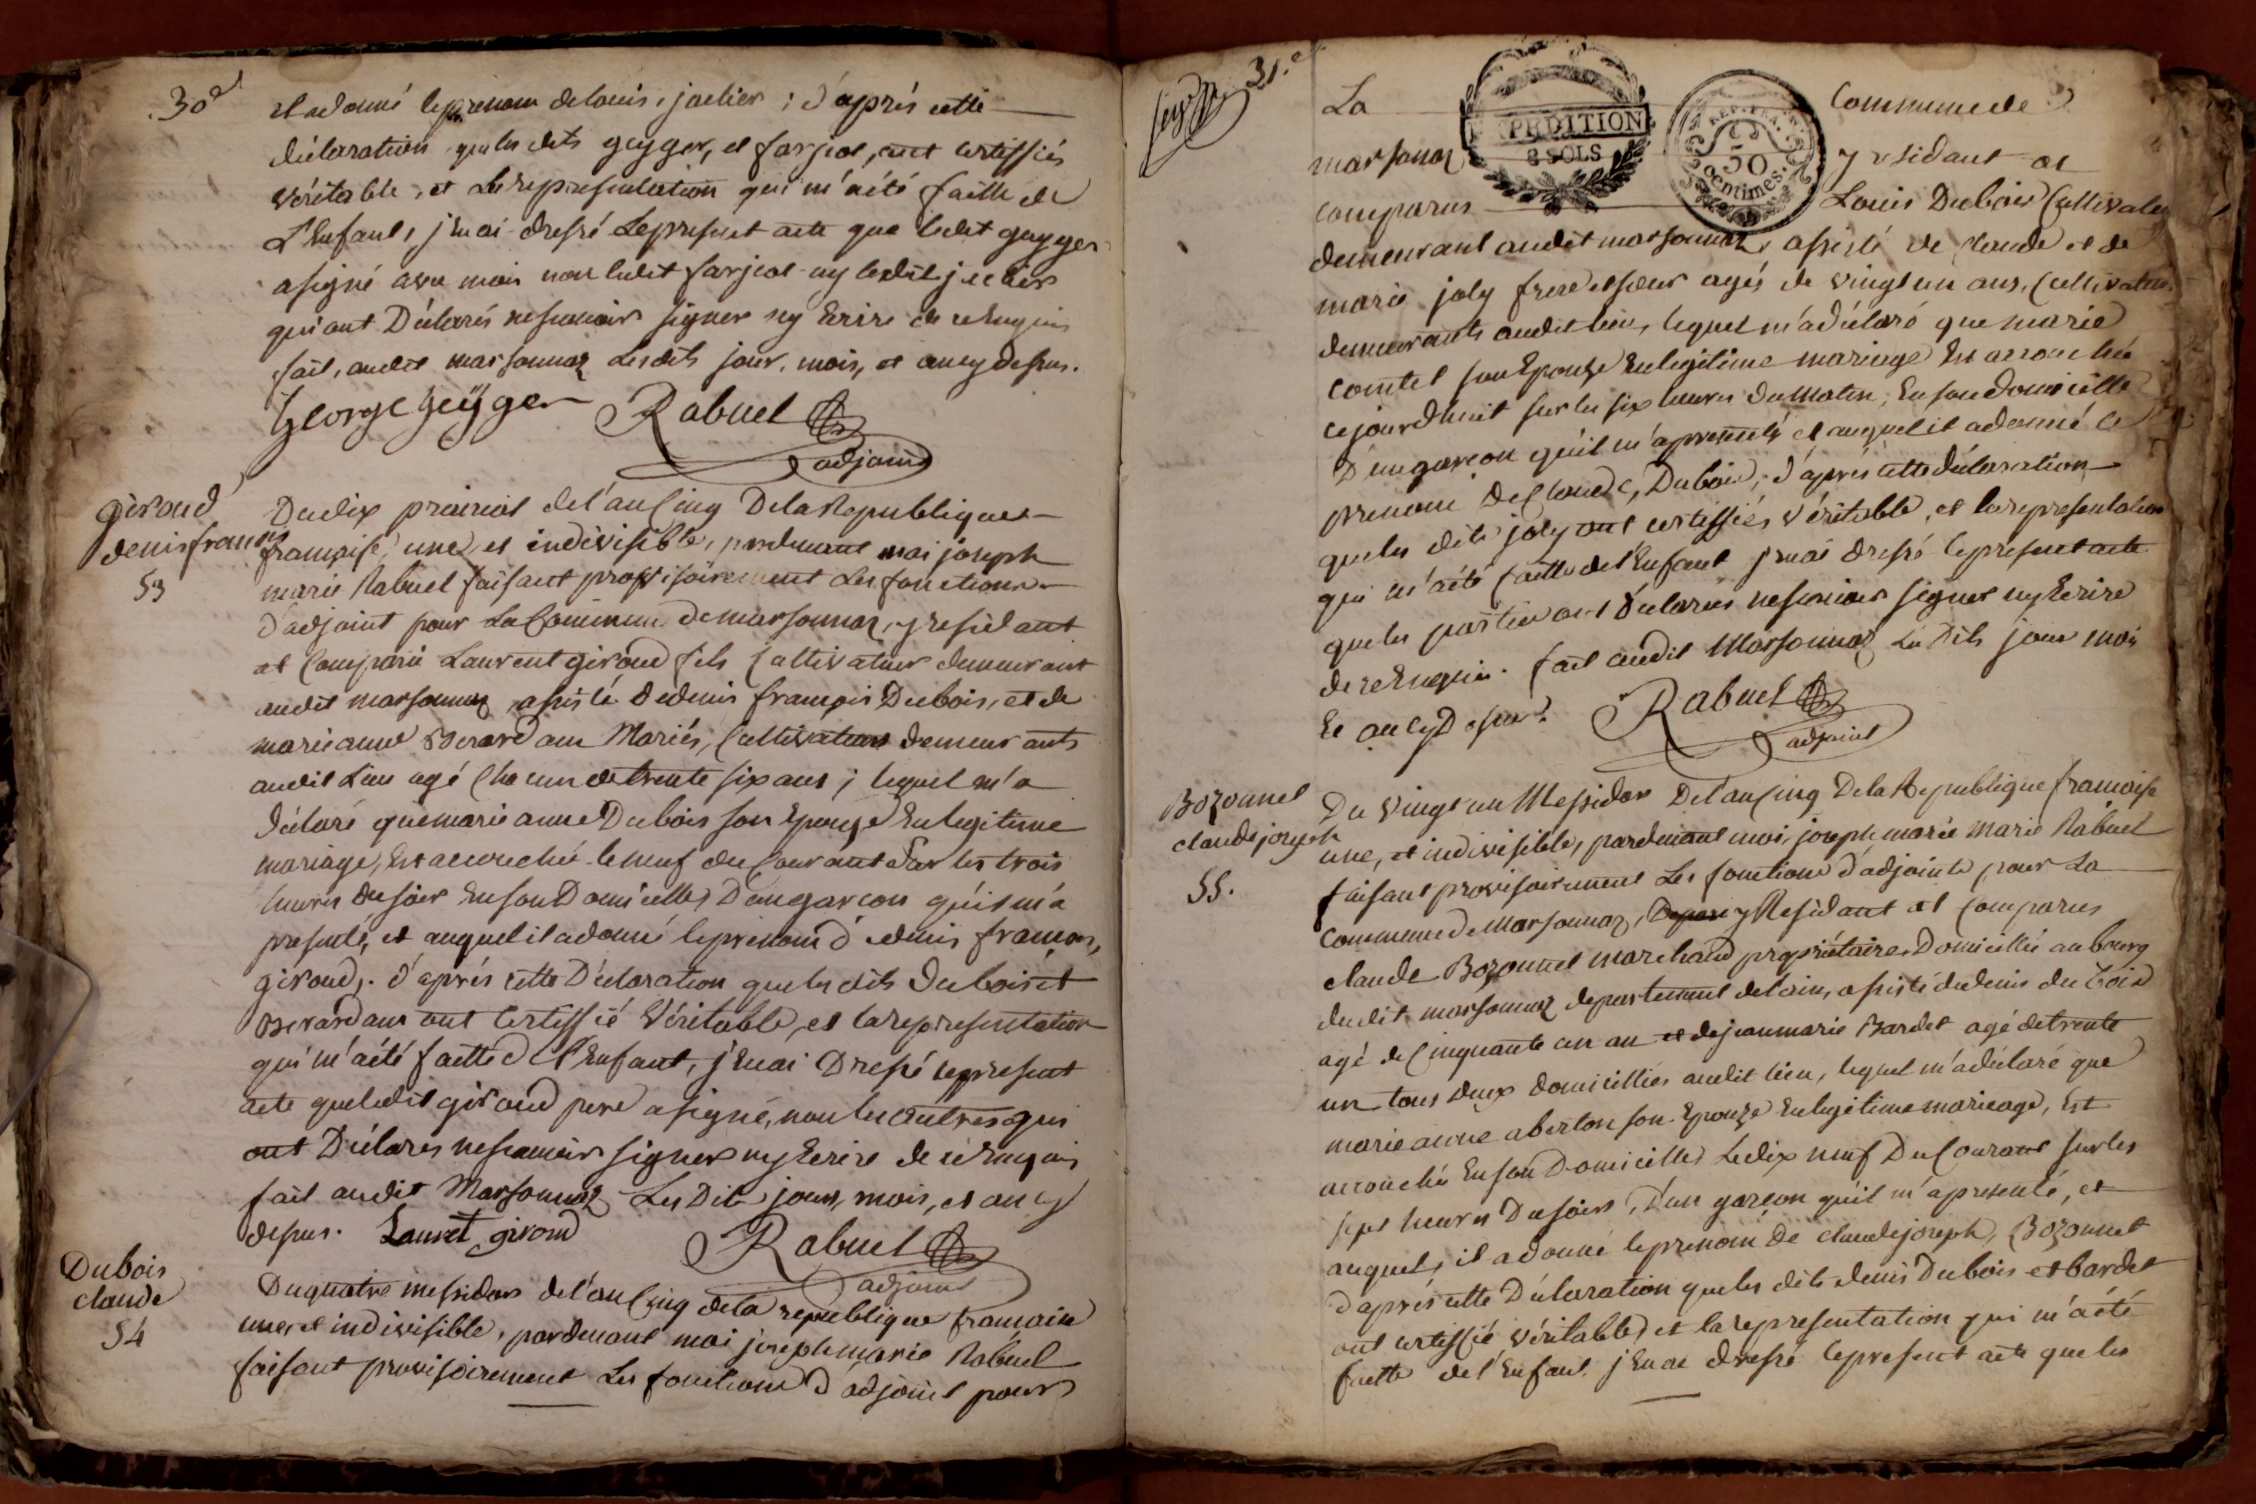 30e
et adonné le prenom de louis, jaelier ; d'après cette
déclaration que les dits geyger, et farjeot, ont certiffiés
véritable, et La representation qui m'aété faitte de
L'Enfant, j'enai dressé Lepresent acte que ledit geyger
asigné avec moi non ledit farjeot ny ledit jaelier
qui ont Déclarés nesavoir signer ny Ecrire de ce Enquis
fait, audit marsonnaz Lesdits jour, mois, et an cy dessus.
George geÿger Rabuel
adjoint
giroud
denis françois
53
Du dix prairial de l'an Cinq De la Republique
française, une, et indivisible, pardevant moi joseph
marie Rabuel faisant provisoirement Les fonctions
d'adjoint pour La Commune de marsonnaz, y residant
at Comparu Laurent giroud fils Cultivateur demeurant
audit marsonnaz, assisté de denis françois Dubois, et de
marie anne Berardan Mariés, Cultivateurs demeurants
audit Lieu agé Chacun de trente six ans ; lequel m'a
déclaré que marie anne Dubois son Epouze En legitime
mariage, Est accouchée le neuf du Courant Sur les trois
heures du soir En son Domicille, D'un garcon qu'il m'a
presenté, et auquel il adonné le prenom d'edenis francois,
giroud, d'après cette Déclaration que les dits Dubois et
Berardan ont Certiffié Véritable, et la representation
qui m'aété faitte de l'Enfant, j'Enai Dressé le present
acte que ledit giroud pere a signé, non les autres qui
ont Déclarés nesavoir signer ny Ecrire de ce Enquis
fait audit Marsonnaz Les Dits jour, mois, et an cy
dessus. Lauret giroud Rabuel
adjoint
Dubois
claude
54
Du quatre messidor de l'an Cinq de la republique francaise
une, et indivisible, pardevant moi joseph marie Rabuel
faisant provisoirement Les fonctions d'adjoint pour
31.e
EXPEDITION
8 SOLS
REP. FRA.
50
centimes.
La Commune de
marsonnaz y residant at
comparus Louis Dubois Cultivateur
demeurant audit marsonnaz, assisté de Claude et de
marie joly frere et soeur agés de vingt un ans, Cultivateurs
demeurants audit lieu, lequel m'adéclaré que marie
comtet son Epouze En legitime mariage Est accouchée
cejourdhuit sur les six heures du Matin, En son domicille
D'un garcon qu'il m'apresenté et auquel il adonné le
prenom de Claude, Dubois ; d'après cette déclaration
que les dits joly ont certiffiés Véritable, et la representation
qui m'aété faitte de l'Enfant j'enai dressé le present acte
que les parties ont Déclarées nesavoir signer ny Ecrire
de ce Enquis. fait audit Marsonnaz Les Dits jour mois
Et an cy Dessus. Rabuel
adjoint
Bozonnet
claude joseph
55.
Du vingt un Messidor De l'an Cinq De la Republique francaise
une, et indivisible, pardevant moi, joseph marie marie Rabuel
faisant provisoirement Les fonctions d'adjoint pour La
Commune de Marsonnaz, y Residant at Comparus
claude Bozonnet marchand propriétaire Domicillié au bourg
dudit marsonnaz departement de lain, assisté de denis du bois
agé de Cinquante un an et de jean marie Bardet agé de trente
un tous deux domicilliés audit lieu, lequel m'adéclaré que
marie anne aberton son Epouze En legitime mariage, Est
accouchée En son Domicille, Le dix neuf Du Courant sur les
sept heures Du soir, D'un garcon qu'il m'apresenté, et
auquel, il adonné le prenom de claude joseph, Bozonnet
d'après cette Déclaration que les dits denis Dubois et bardet
ont certiffié véritable, et la representation qui m'aété
faitte de l'Enfant j'Enai dressé le present acte que les